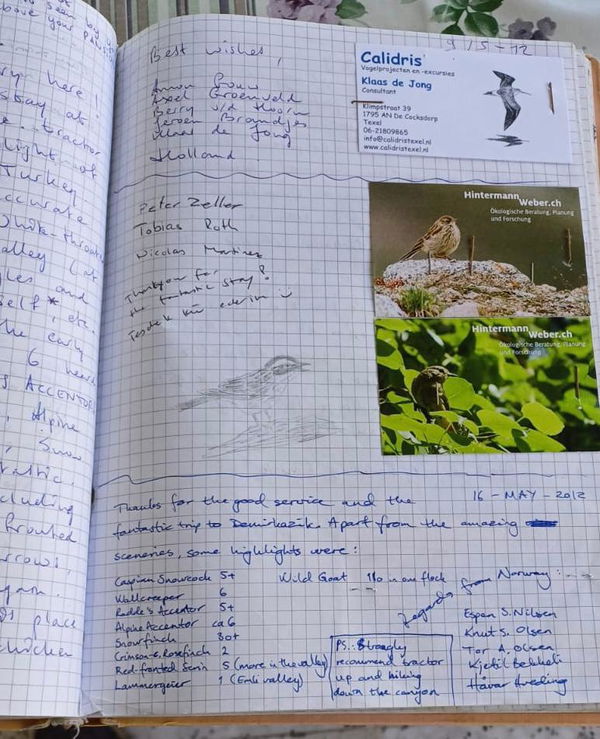 above your
here!
stay at
tractor
light of
Turkey
accurate
valley (at
and
self*, etc.
the early
6
ACCENTOR
Alpine
Snow
including
Fronted
place
Best wishes,
9/5-12
Groeneveld
Berry v/d Hoorn
Jeroen Brandjes
Klaas de Jong
Holland
Calidris
Vogelprojecten en -excursies
Klaas de Jong
Consultant
Klimpstraat 39
1795 AN De Cocksdorp
Texel
06-21809865
info@calidristexel.nl
www.calidristexel.nl
Peter Zeller
Tobias Roth
Nicolas Martinez
Thankyou for
the fantastic stay!
Hintermann
Weber.ch
Ökologische Beratung, Planung
und Forschung
Hintermann
Weber.ch
Ökologische Beratung, Planung
und Forschung
16 - MAY - 2012
Thanks for the good service and the
fantastic trip to Demirkazik. Apart from the amazing
sceneries, some highlights were:
Caspian Snowcock 5+
Wallcreeper 6
Radde's Accentor 5+
Alpine Accentor ca 6
Snowfinch 30+
Crimson-w. Rosefinch 2
Red-fronted Serin 5 (more in the valley)
Lammergeier 1 (Emli valley)
Wild Goat 110 in one flock
PS.: Strongly
recommend tractor
up and hiking
down the canyon
Regards from Norway:
Espen S. Nilsen
Knut S. Olsen
Tor A. Olsen
Kjetil
Håvar Hveding